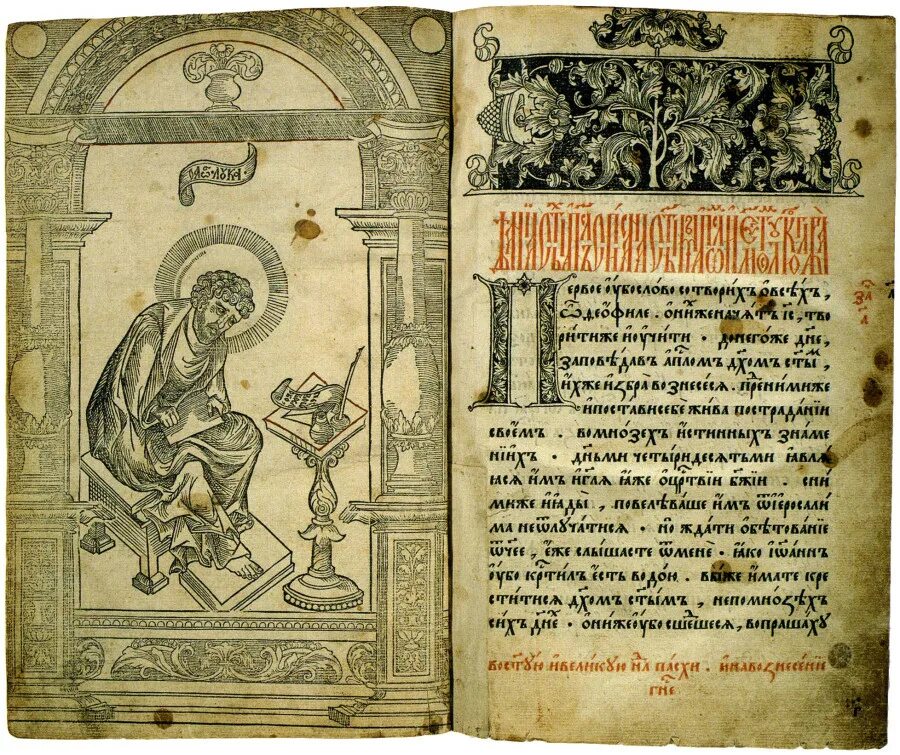 ѡ҃ лꙋка
Первое ѹ҆бо слово сотворихъ ѡ҆ всѣхъ,
ѽ ѳеѡ́филе. ѡ҆ ни́хже начѧ́тъ і҆с, тво
ри́тиже и҆ ѹ҆чи́ти · до него́же дн҃е,
заповѣ́давъ а҆пⷭ҇ломъ дх҃омъ ст҃ымъ,
и҆́хже и҆збра̀ вознесе́сѧ. пре́дними же
и҆ поста́ви себѐ жи́ва по страда́нїи
свое́мъ. во мно́зехъ и҆́стинныхъ зна́ме
нїихъ · дн҃ьми четы́ридесѧтьми ꙗ҆влѧ́
ꙗсѧ и҆̀мъ и҆ гл҃ѧ ꙗ҆́же ѡ҆ црⷭ҇твїи бж҃їи. сни́
миже и҆ ꙗ҆ды̀, повелѣ́ваше и҆̀мъ ѿ і҆ерⷭ҇али
ма не ѿлꙋча́тисѧ · но жда́ти ѡ҆бѣтова́нїе
ѿч҃ее, є҆́же слы́шасте ѿ менѐ · ꙗ҆́ко і҆ѡ҆а́ннъ
ѹ҆́бо кр҃ти́лъ є҆́сть водо́ю. вы́же и҆́мате кре
сти́тисѧ дх҃омъ ст҃ы́мъ, не по мно́ѕѣхъ
си́хъ дн҃е · ѡ҆ни́же ѹ҆́бо сше́дшесѧ, вопраша́хꙋ
во ст҃ꙋю и҆ вели́кꙋю нⷣлю па́схи. и҆ на вознесе́нїе
гн҃е